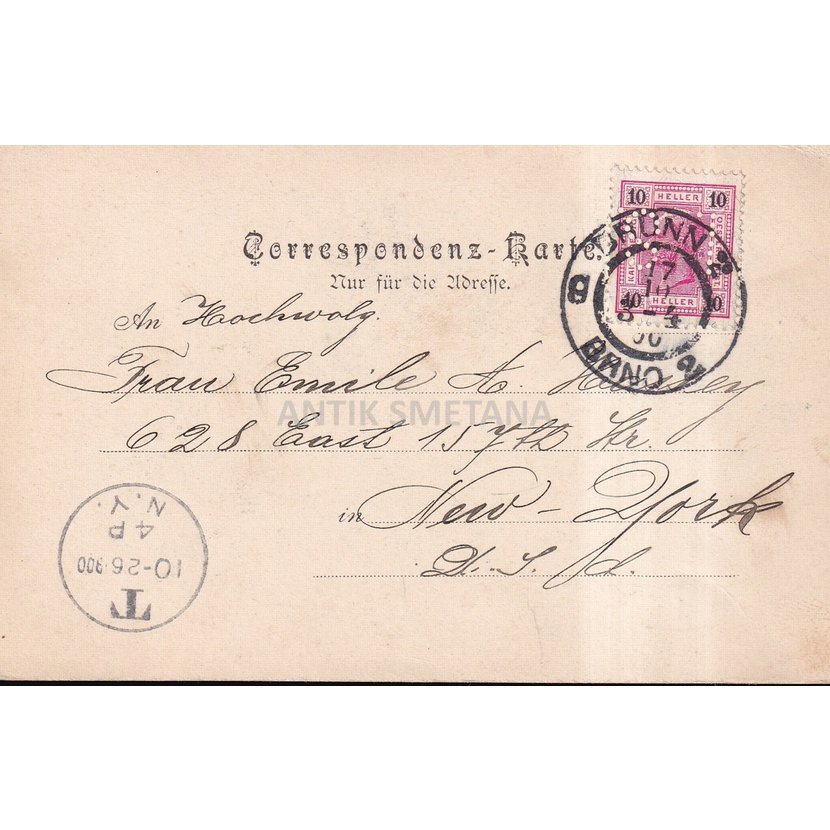 Correspondenz-Karte.
Nur für die Adresse.
10 HELLER 10
10 HELLER 10
BRÜNN 2
17
10
3-4
00
BRNO 2
An Hochwolg.
Frau Emile A.
ANTIK SMETANA
628 East 157th Str.
in New-York
T
10-26-900
4P
N.Y.